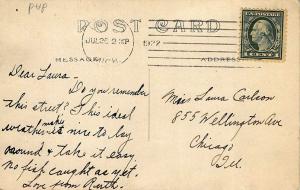 PHP
POST CARD
JUL 26 2 PM
1922
MESSAGE
ADDRESS
CENTS
Dear Laura-
Do you remember
this street? This ideal
weather makes nice to lay
around & take it easy.
No fish caught as yet.
Love from Ruth.
Miss Laura Carlson
855 Wellington Ave
Chicago
Ill.